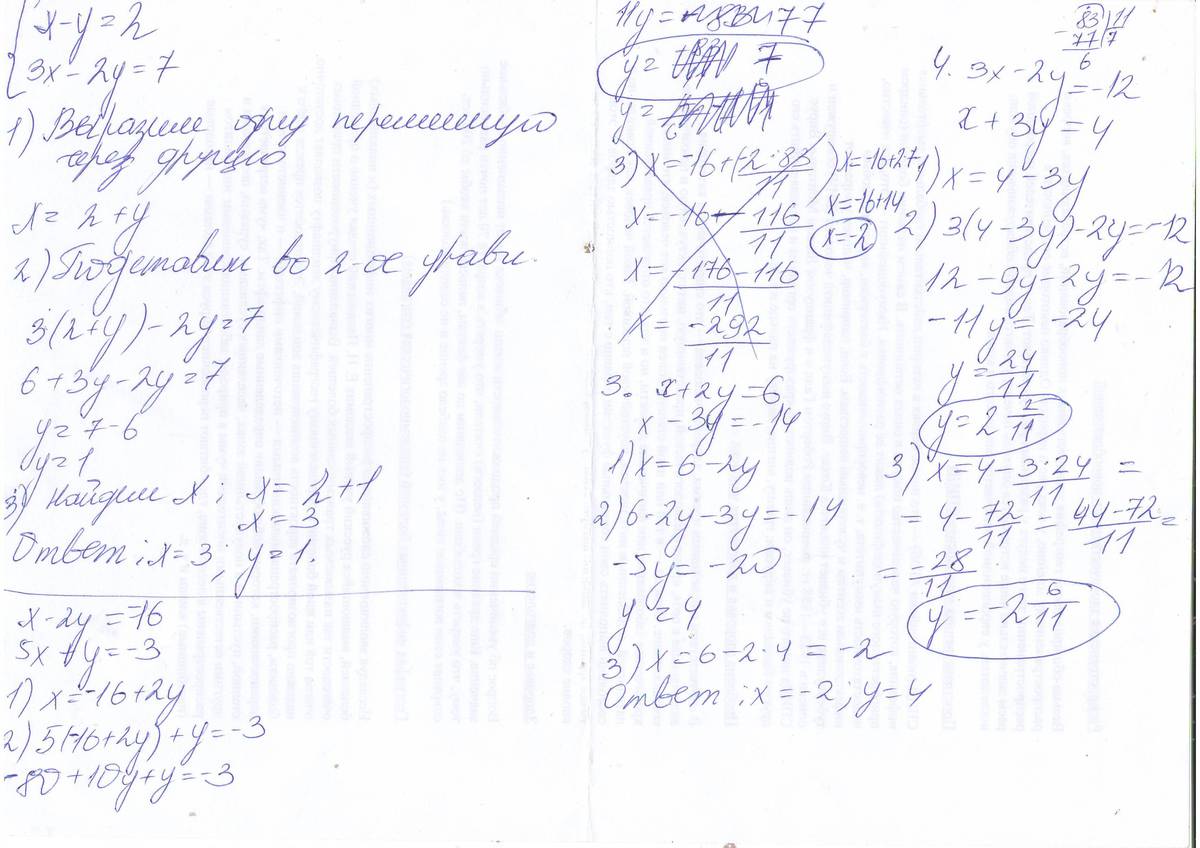 x-y=2
3x-2y=7
1) Выразим одну переменную
через другую
x= 2+y
2) Подставим во 2-ое уравн.
3(2+y)-2y=7
6+3y-2y=7
y=7-6
y=1
3) Найдём x; x= 2+1
x=3
Ответ: x=3; y=1.
x-2y=-16
5x+y=-3
1) x=-16+2y
2) 5(-16+2y)+y=-3
-80+10y+y=-3
11y= 77
y= 7
y=
3) x=-16+(-2·83/11)
x=-16-116/11
x=-176-116/11
x= -292/11
x=-16+2·7
x=-16+14
x=-2
3. x+2y=6
x-3y=-14
1) x=6-2y
2) 6-2y-3y=-14
-5y=-20
y=4
3) x=6-2·4=-2
Ответ: x=-2; y=4
83 11
-77 7
6
4. 3x-2y=-12
x+3y=4
1) x=4-3y
2) 3(4-3y)-2y=-12
12-9y-2y=-12
-11y=-24
y=24/11
y=2 2/11
3) x=4-3·24/11=
=4-72/11=44-72/11=
=-28/11
y=-2 6/11